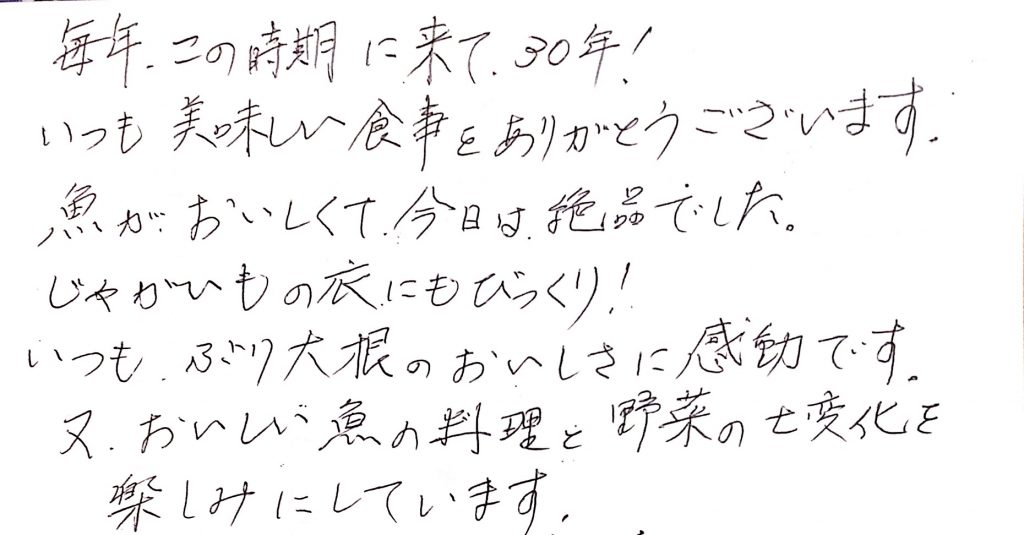 毎年、この時期に来て、30年!
いつも美味しい食事をありがとうございます。
魚がおいしくて、今日は、絶品でした。
じゃがいもの衣にもびっくり!
いつも、ぶり大根のおいしさに感動です。
又、おいしい魚の料理と野菜の七変化を
楽しみにしています。